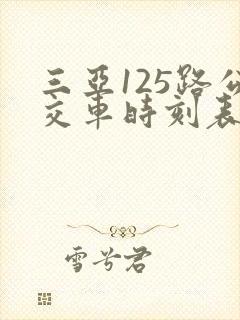 三亞125路公
交車時刻表
雪兮君